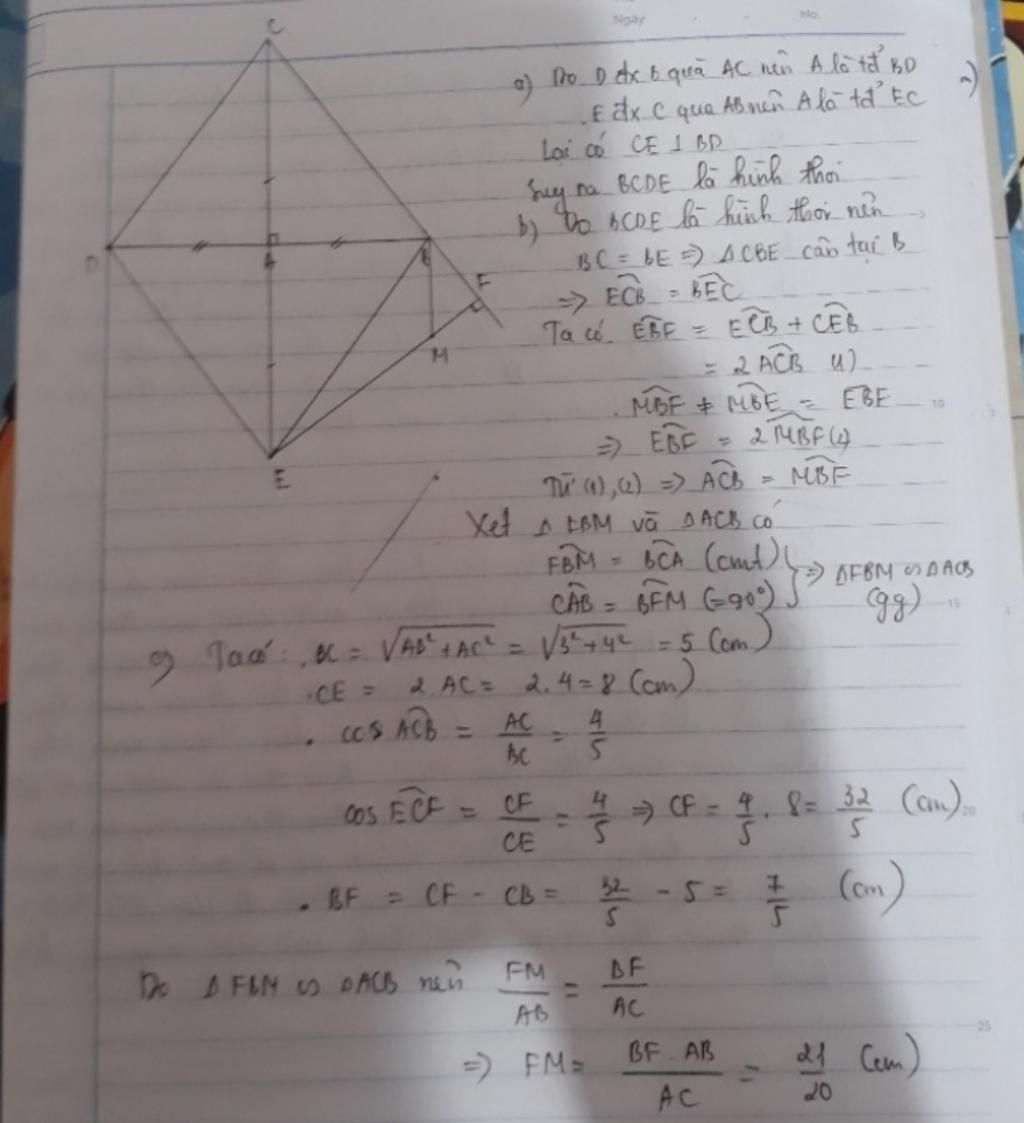 Ngày
No.
C
D
A
B
F
M
E
a) Do D đx B qua AC nên A là tđ' BD
. E đx C qua AB nên A là tđ' EC
Lại có CE ⊥ BD
Suy ra BCDE là hình thoi
b) Do BCDE là hình thoi nên
BC = BE => ΔCBE cân tại B
=> ECB = BEC
Ta có. EBF = ECB + CEB
= 2ACB (1)
. MBF + MBE = EBF
10
=> EBF = 2MBF (2)
Từ (1), (2) => ACB = MBF
Xét Δ FBM và ΔACB có
FBM = BCA (cmt)
CAB = BFM (=90°) } => ΔFBM ∽ ΔACB
(gg)
15
c) Ta có: . BC = √AB² + AC² = √3² + 4² = 5 (cm)
. CE = 2 AC = 2. 4 = 8 (cm)
. cos ACB = AC/BC = 4/5
cos ECF = CF/CE = 4/5 => CF = 4/5 . 8 = 32/5 (cm)
20
. BF = CF - CB = 32/5 - 5 = 7/5 (cm)
Do ΔFBM ∽ ΔACB nên FM/AB = BF/AC
25
=> FM = BF . AB/AC = 21/20 (cm)